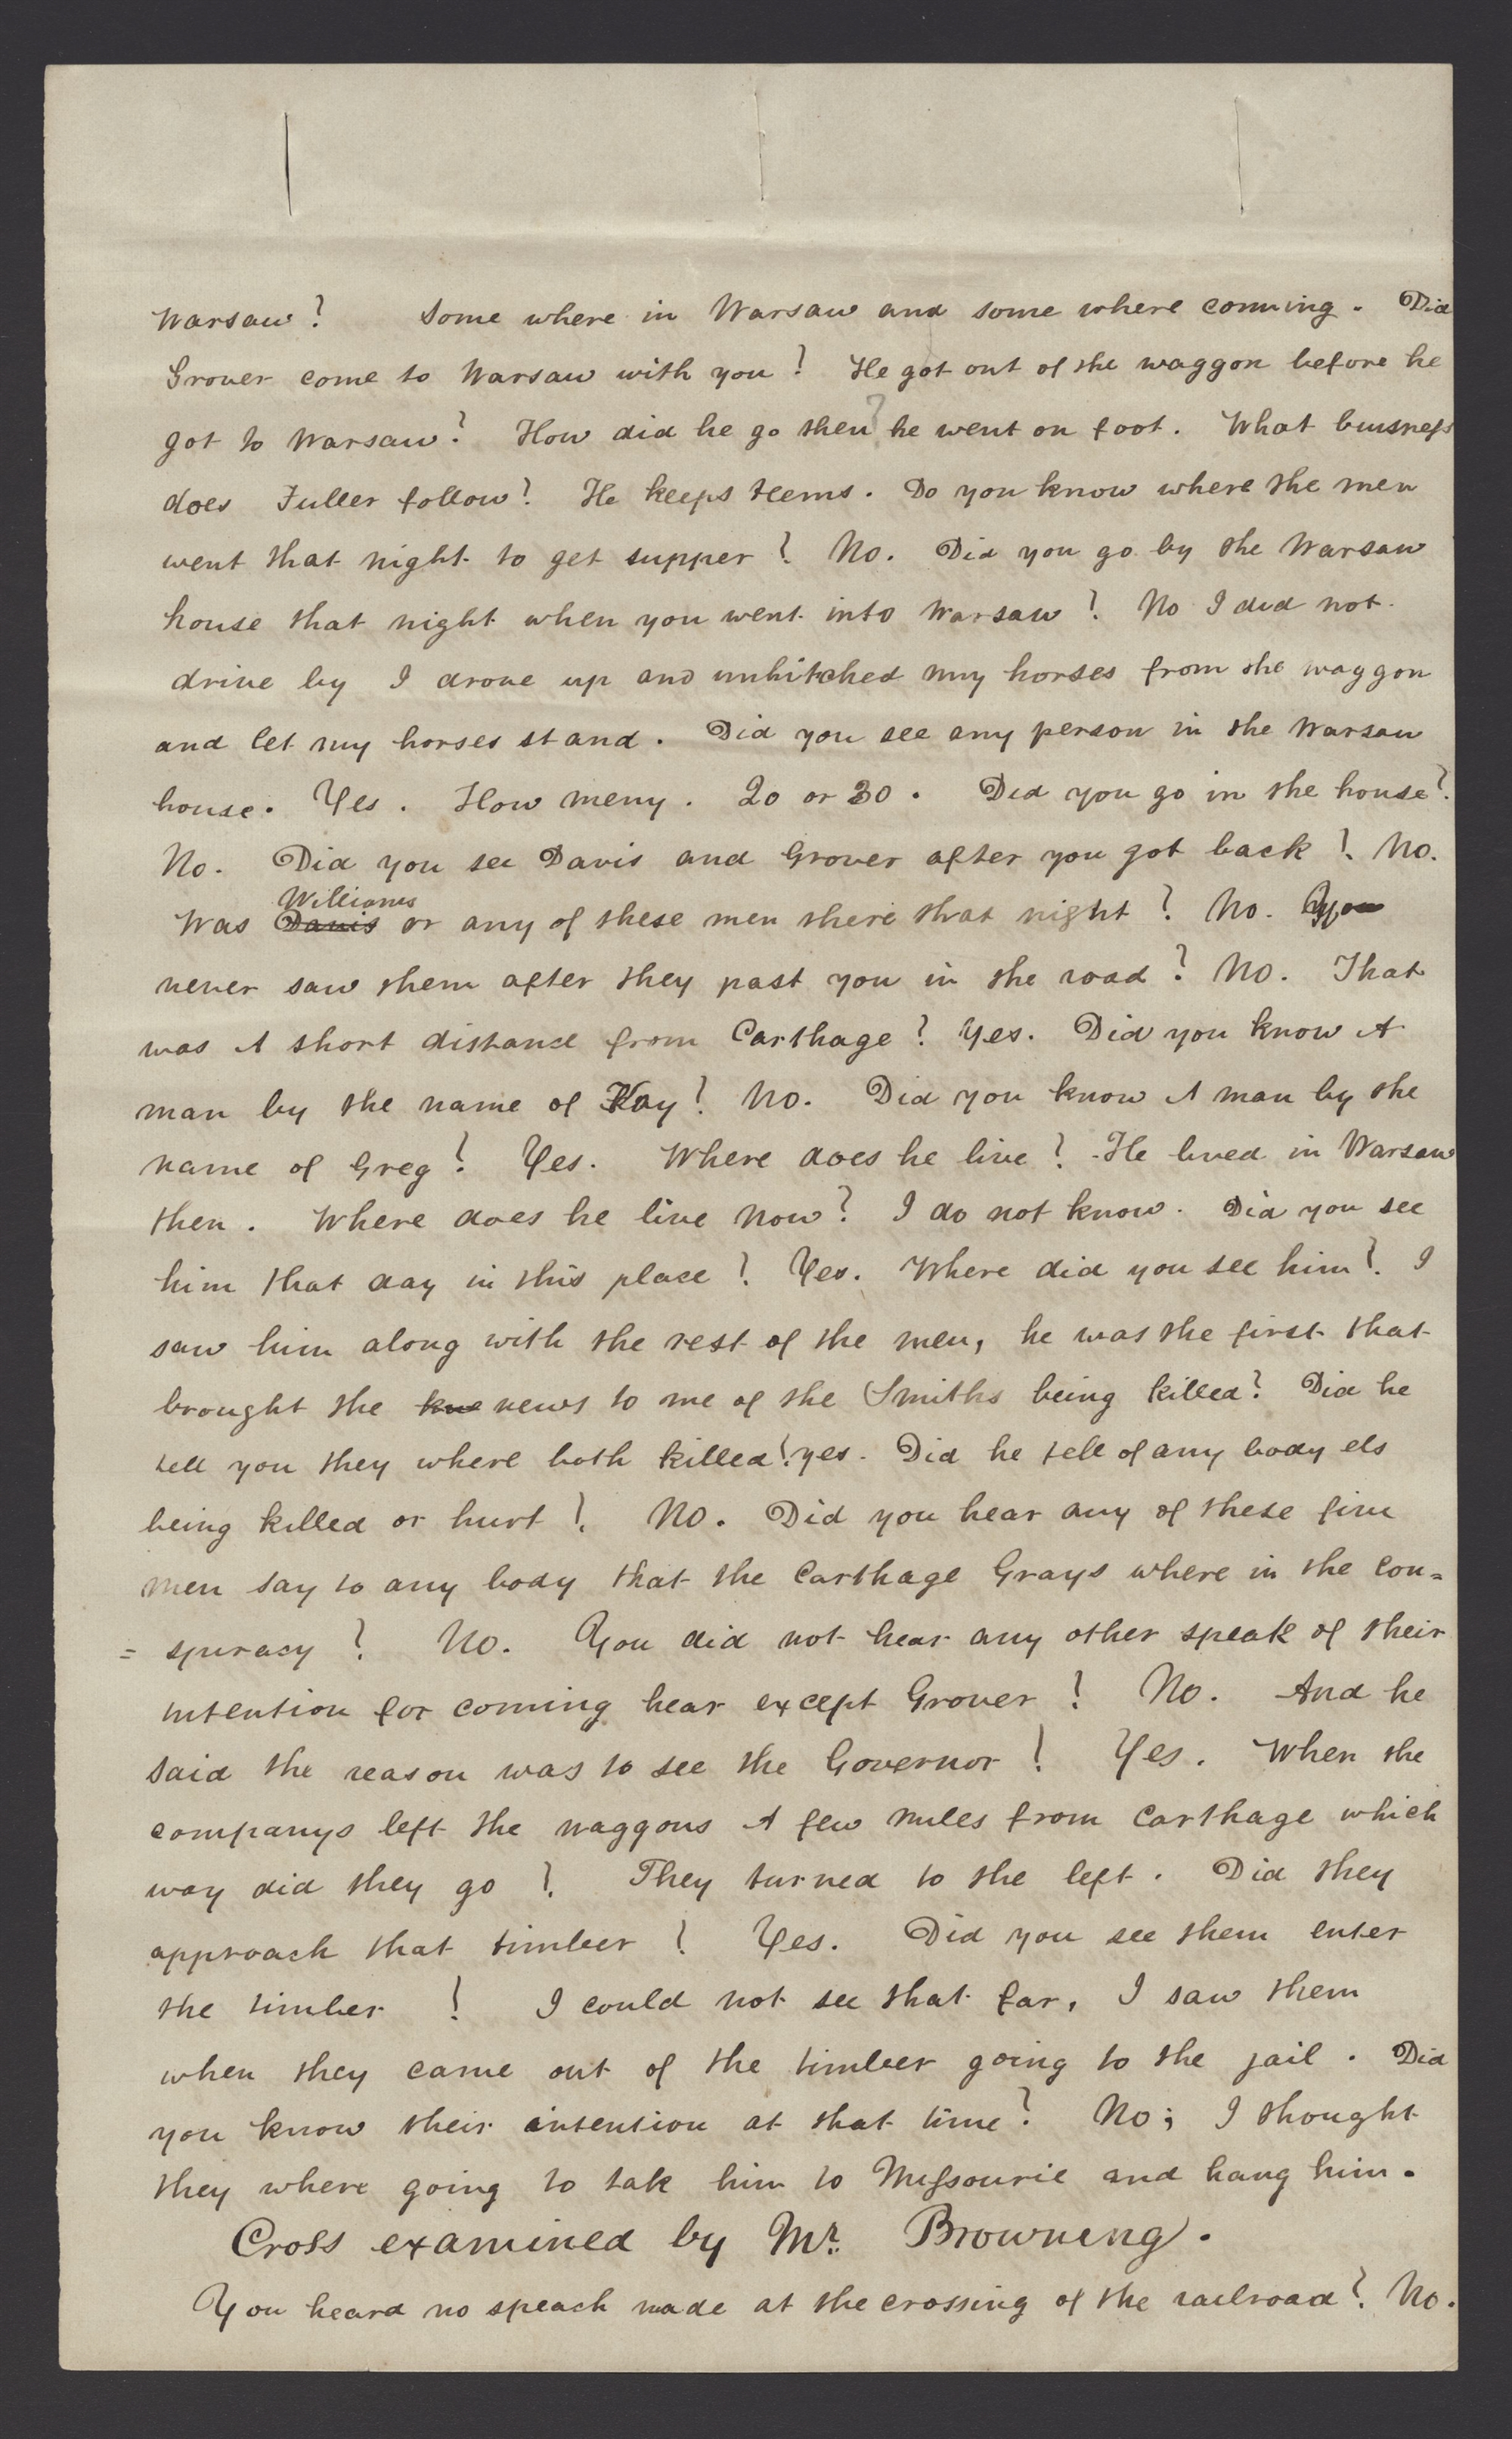 Warsaw? Some where in Warsaw and some where comming. Did
Grover come to Warsaw with you? He got out of the waggon before he
got to Warsaw? How did he go then? he went on foot. What buisness
does Fuller follow? He keeps teems. Do you know where the men
went that night to get supper? No. Did you go by the Warsaw
house that night when you went into Warsaw? No I did not
drive by I drove up and unhitched my horses from the waggon
and let my horses stand. Did you see any person in the Warsaw
house. Yes. How meny. 20 or 30. Did you go in the house?
No. Did you see Davis and Grover after you got back? No.
Williams
Was Davis or any of these men there that night? No. You
never saw them after they past you in the road? No. That
was A short distance from Carthage? Yes. Did you know A
man by the name of Kay? No. Did you know A man by the
name of Greg? Yes. Where does he live? He lived in Warsaw
then. Where does he live now? I do not know. Did you see
him that day in this place? Yes. Where did you see him? I
saw him along with the rest of the men, he was the first that
brought the kne news to me of the Smiths being killed? Did he
tell you they where both killed? yes. Did he tell of any body els
being killed or hurt? No. Did you hear any of these five
men say to any body that the Carthage Grays where in the con=
=spiracy? No. You did not hear any other speak of their
intention for coming hear except Grover? No. And he
said the reason was to see the Governor? Yes. When the
companys left the waggons A few miles from Carthage which
way did they go? They turned to the left. Did they
approach that timber? Yes. Did you see them enter
the timber? I could not see that far, I saw them
when they came out of the timber going to the jail. Did
you know their intention at that time? No; I thought
they where going to tak him to Missourie and hang him.
Cross examined by Mr. Browning.
You heard no speach made at the crossing of the railroad? No.